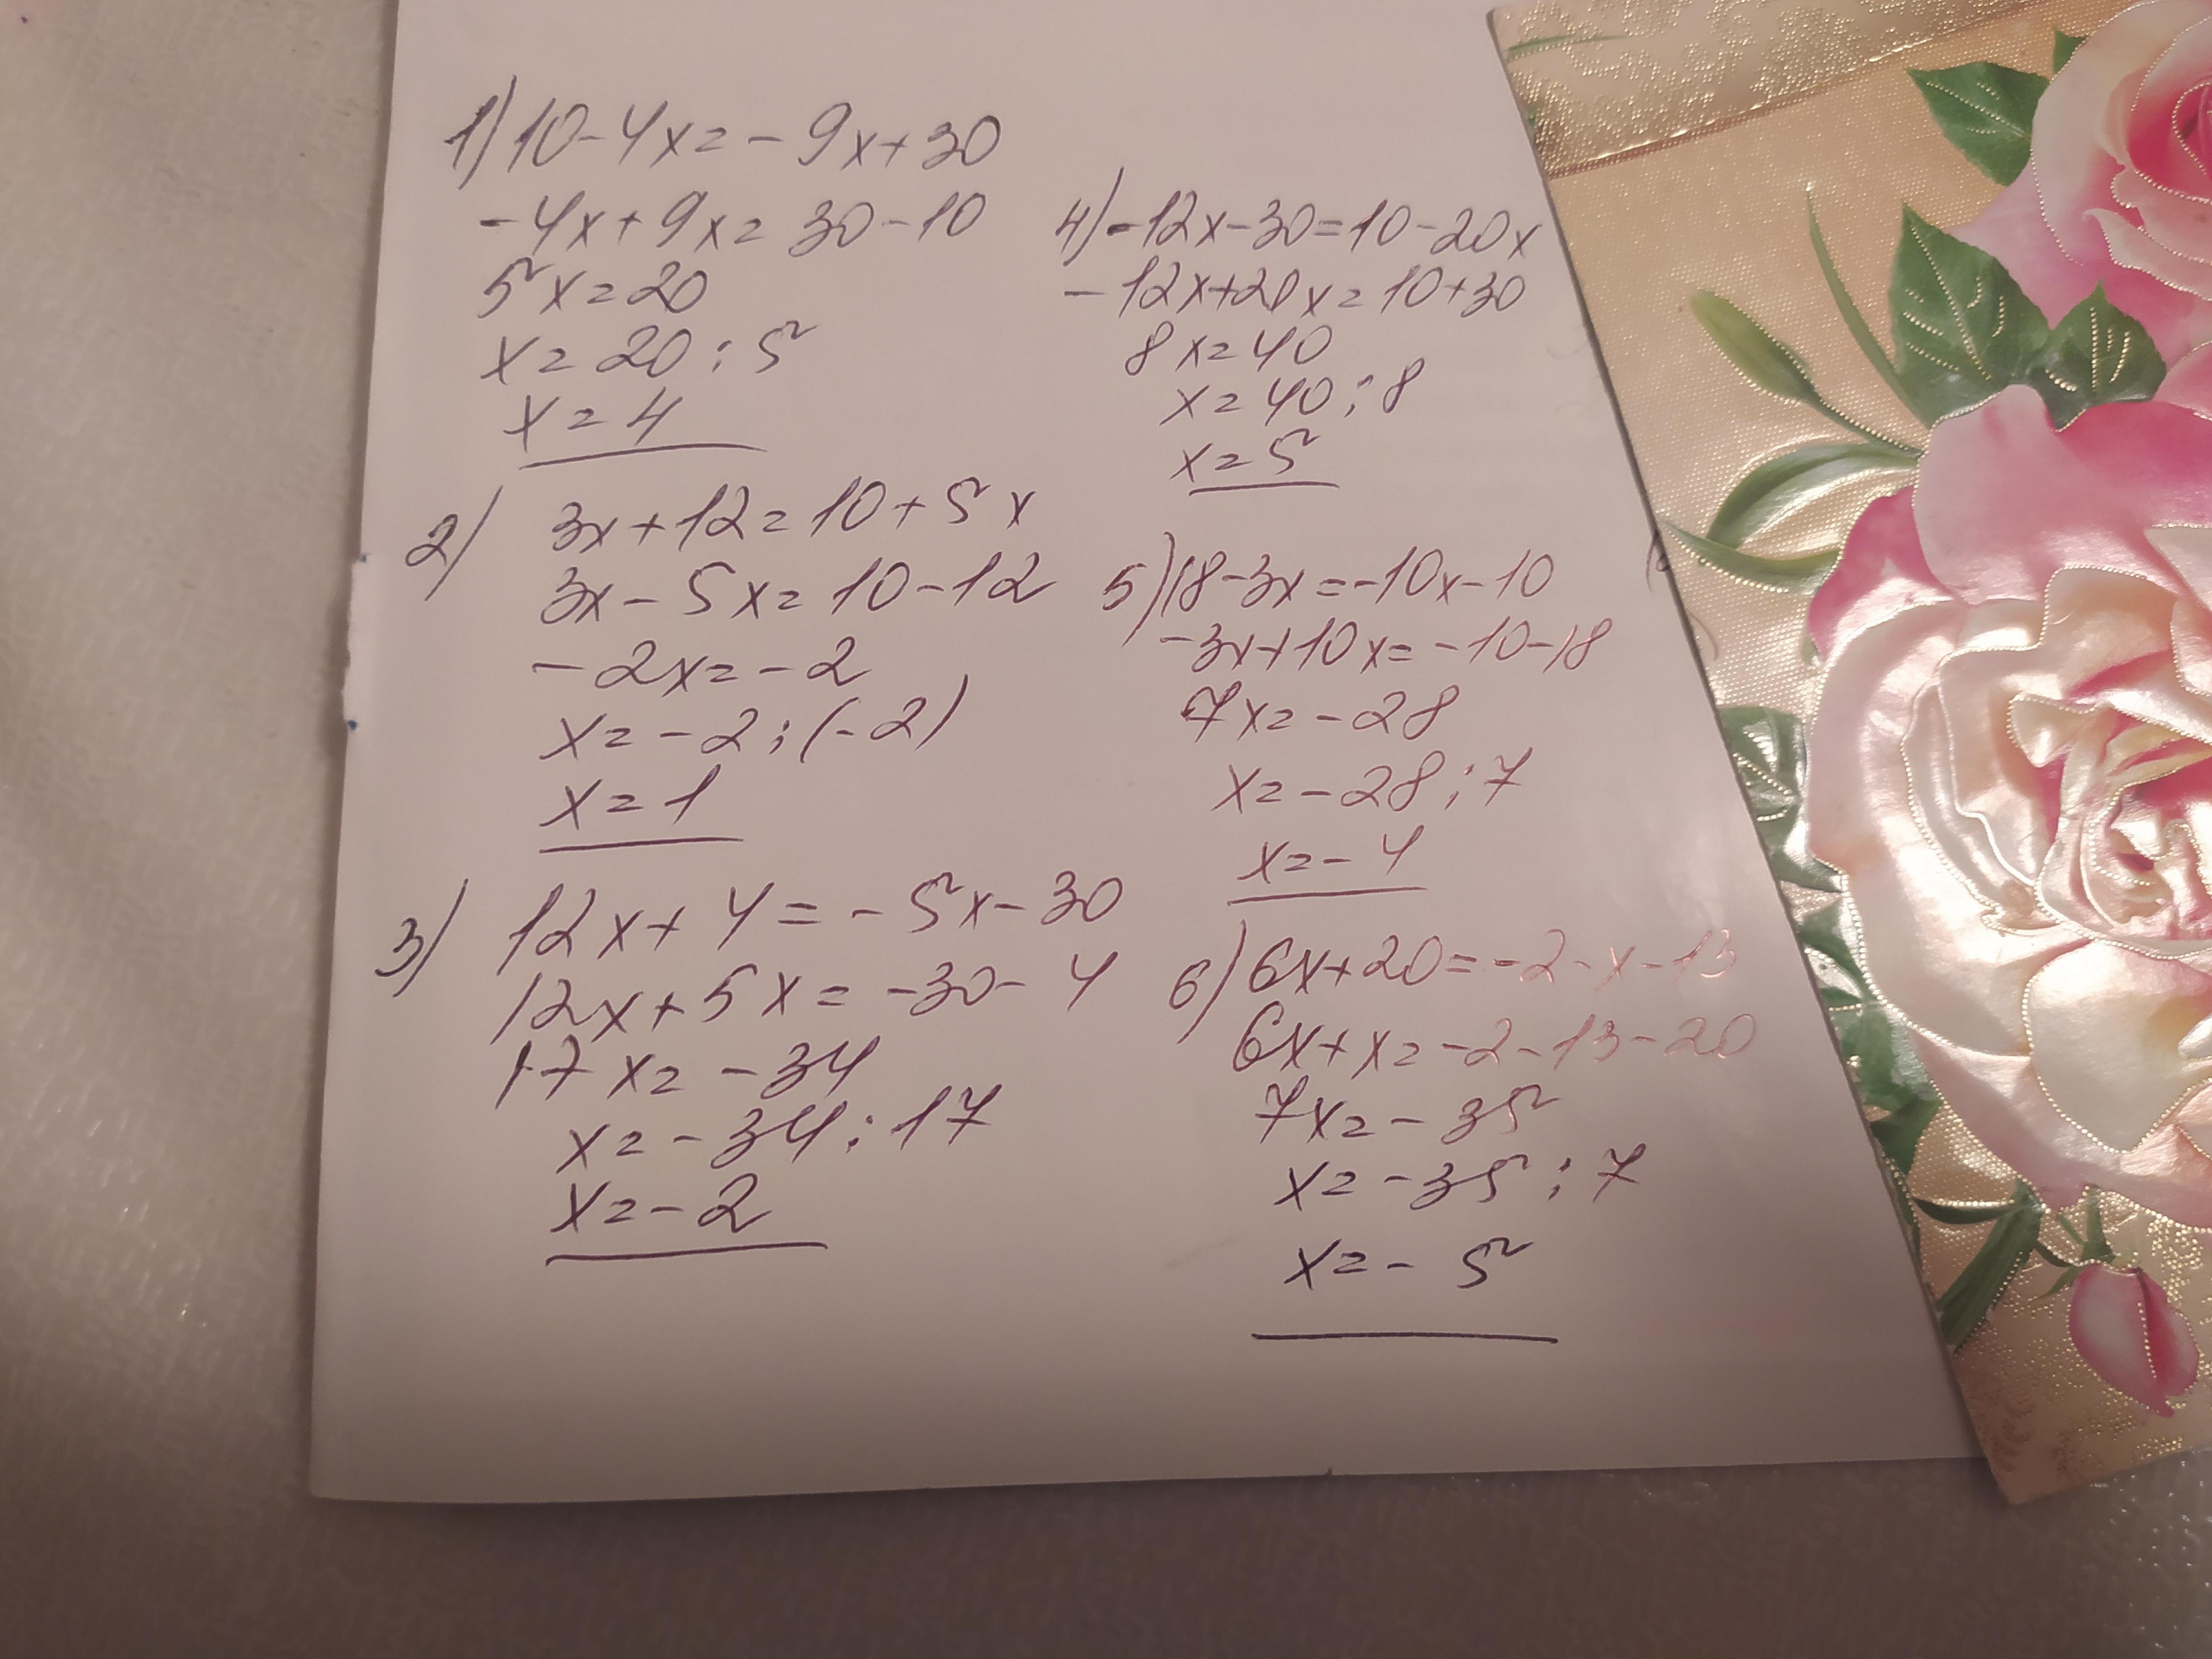 1) 10-4x=-9x+30
-4x+9x=30-10
5x=20
x=20:5
x=4
2) 3x+12=10+5x
3x-5x=10-12
-2x=-2
x=-2:(-2)
x=1
3) 12x+4=-5x-30
12x+5x=-30-4
17x=-34
x=-34:17
x=-2
4) -12x-30=10-20x
-12x+20x=10+30
8x=40
x=40:8
x=5
5) 18-3x=-10x-10
-3x+10x=-10-18
7x=-28
x=-28:7
x=-4
6) 6x+20=-2-x-13
6x+x=-2-13-20
7x=-35
x=-35:7
x=-5